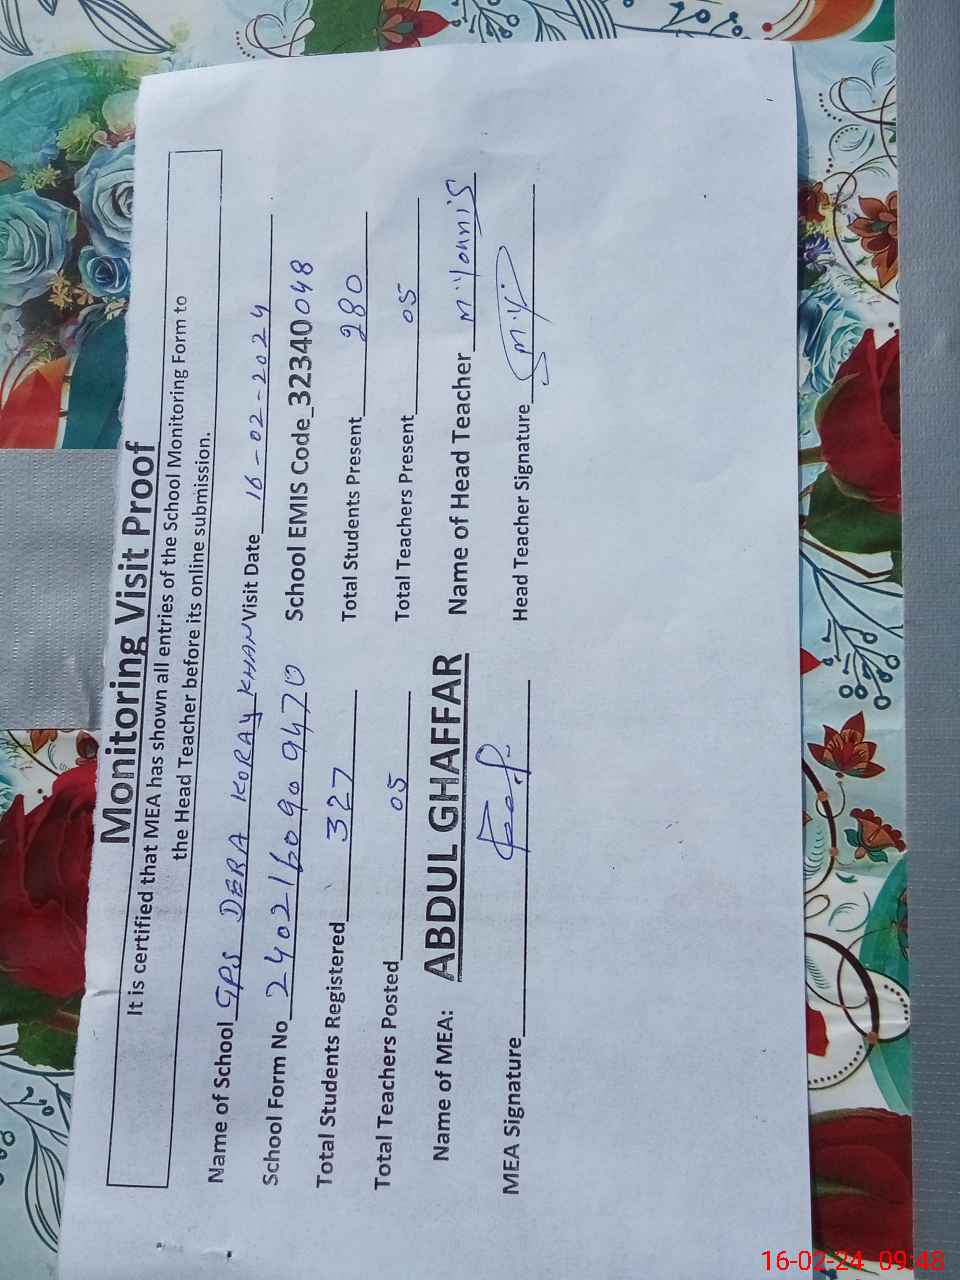 Monitoring Visit Proof
It is certified that MEA has shown all entries of the School Monitoring Form to
the Head Teacher before its online submission.
Name of School GPS DERA KORAY KHAN Visit Date 16-02-2024
School Form No 2402160909470 School EMIS Code_32340048
Total Students Registered 327 Total Students Present 280
Total Teachers Posted 05 Total Teachers Present 05
Name of MEA: ABDUL GHAFFAR Name of Head Teacher M.Younnis
MEA Signature Head Teacher Signature
16-02-24 09:48